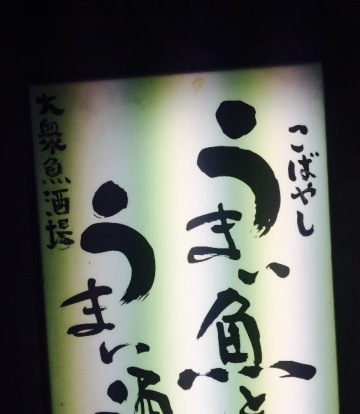 こばやし
うまい魚と
うまい酒
大衆魚酒場